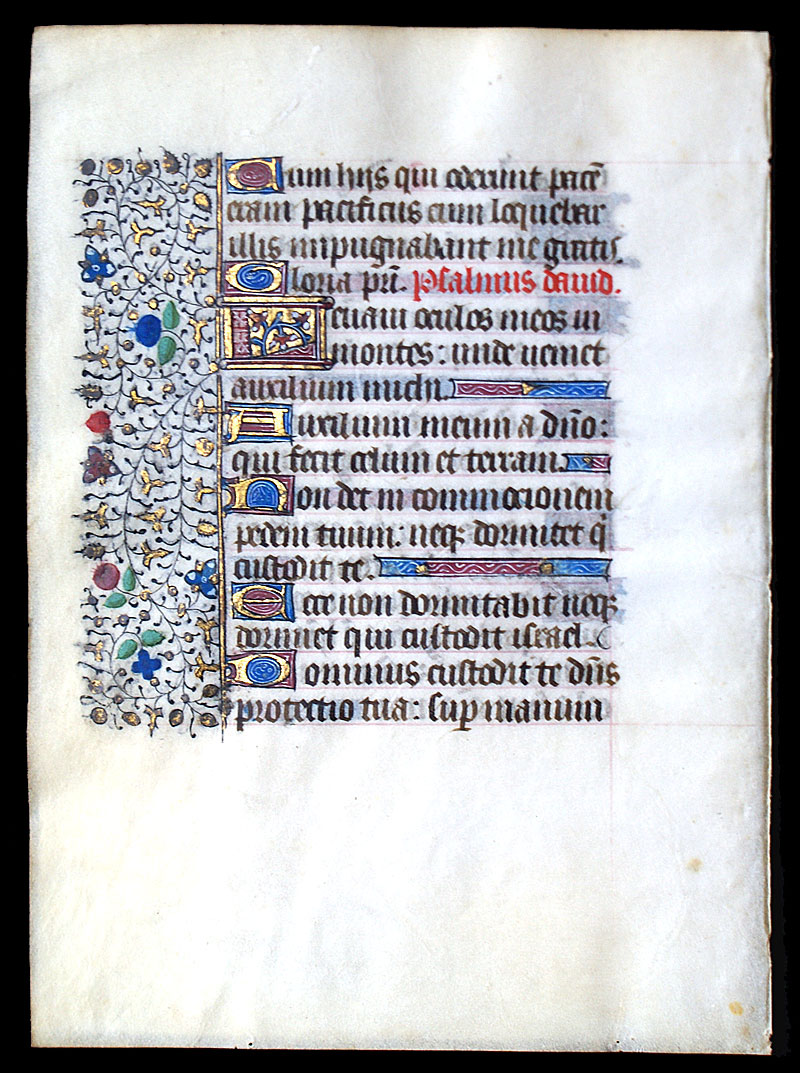 Cum hijs qui oderunt pacē
eram pacificus cum loquebar
illis inpugnabant me gratis.
Gloria pr̄i. Psalmus dauid.
Leuaui oculos meos in
montes: unde ueniet
auxilium michi.
Auxilium meum a dn̄o:
qui fecit celum et terram.
Non det in commocionem
pedem tuum: neqꝫ dormitet q̇
custodit te.
Ecce non dormitabit neqꝫ
dormiet qui custodit israel.
Dominus custodit te dn̄s
protectio tua: suꝑ manum